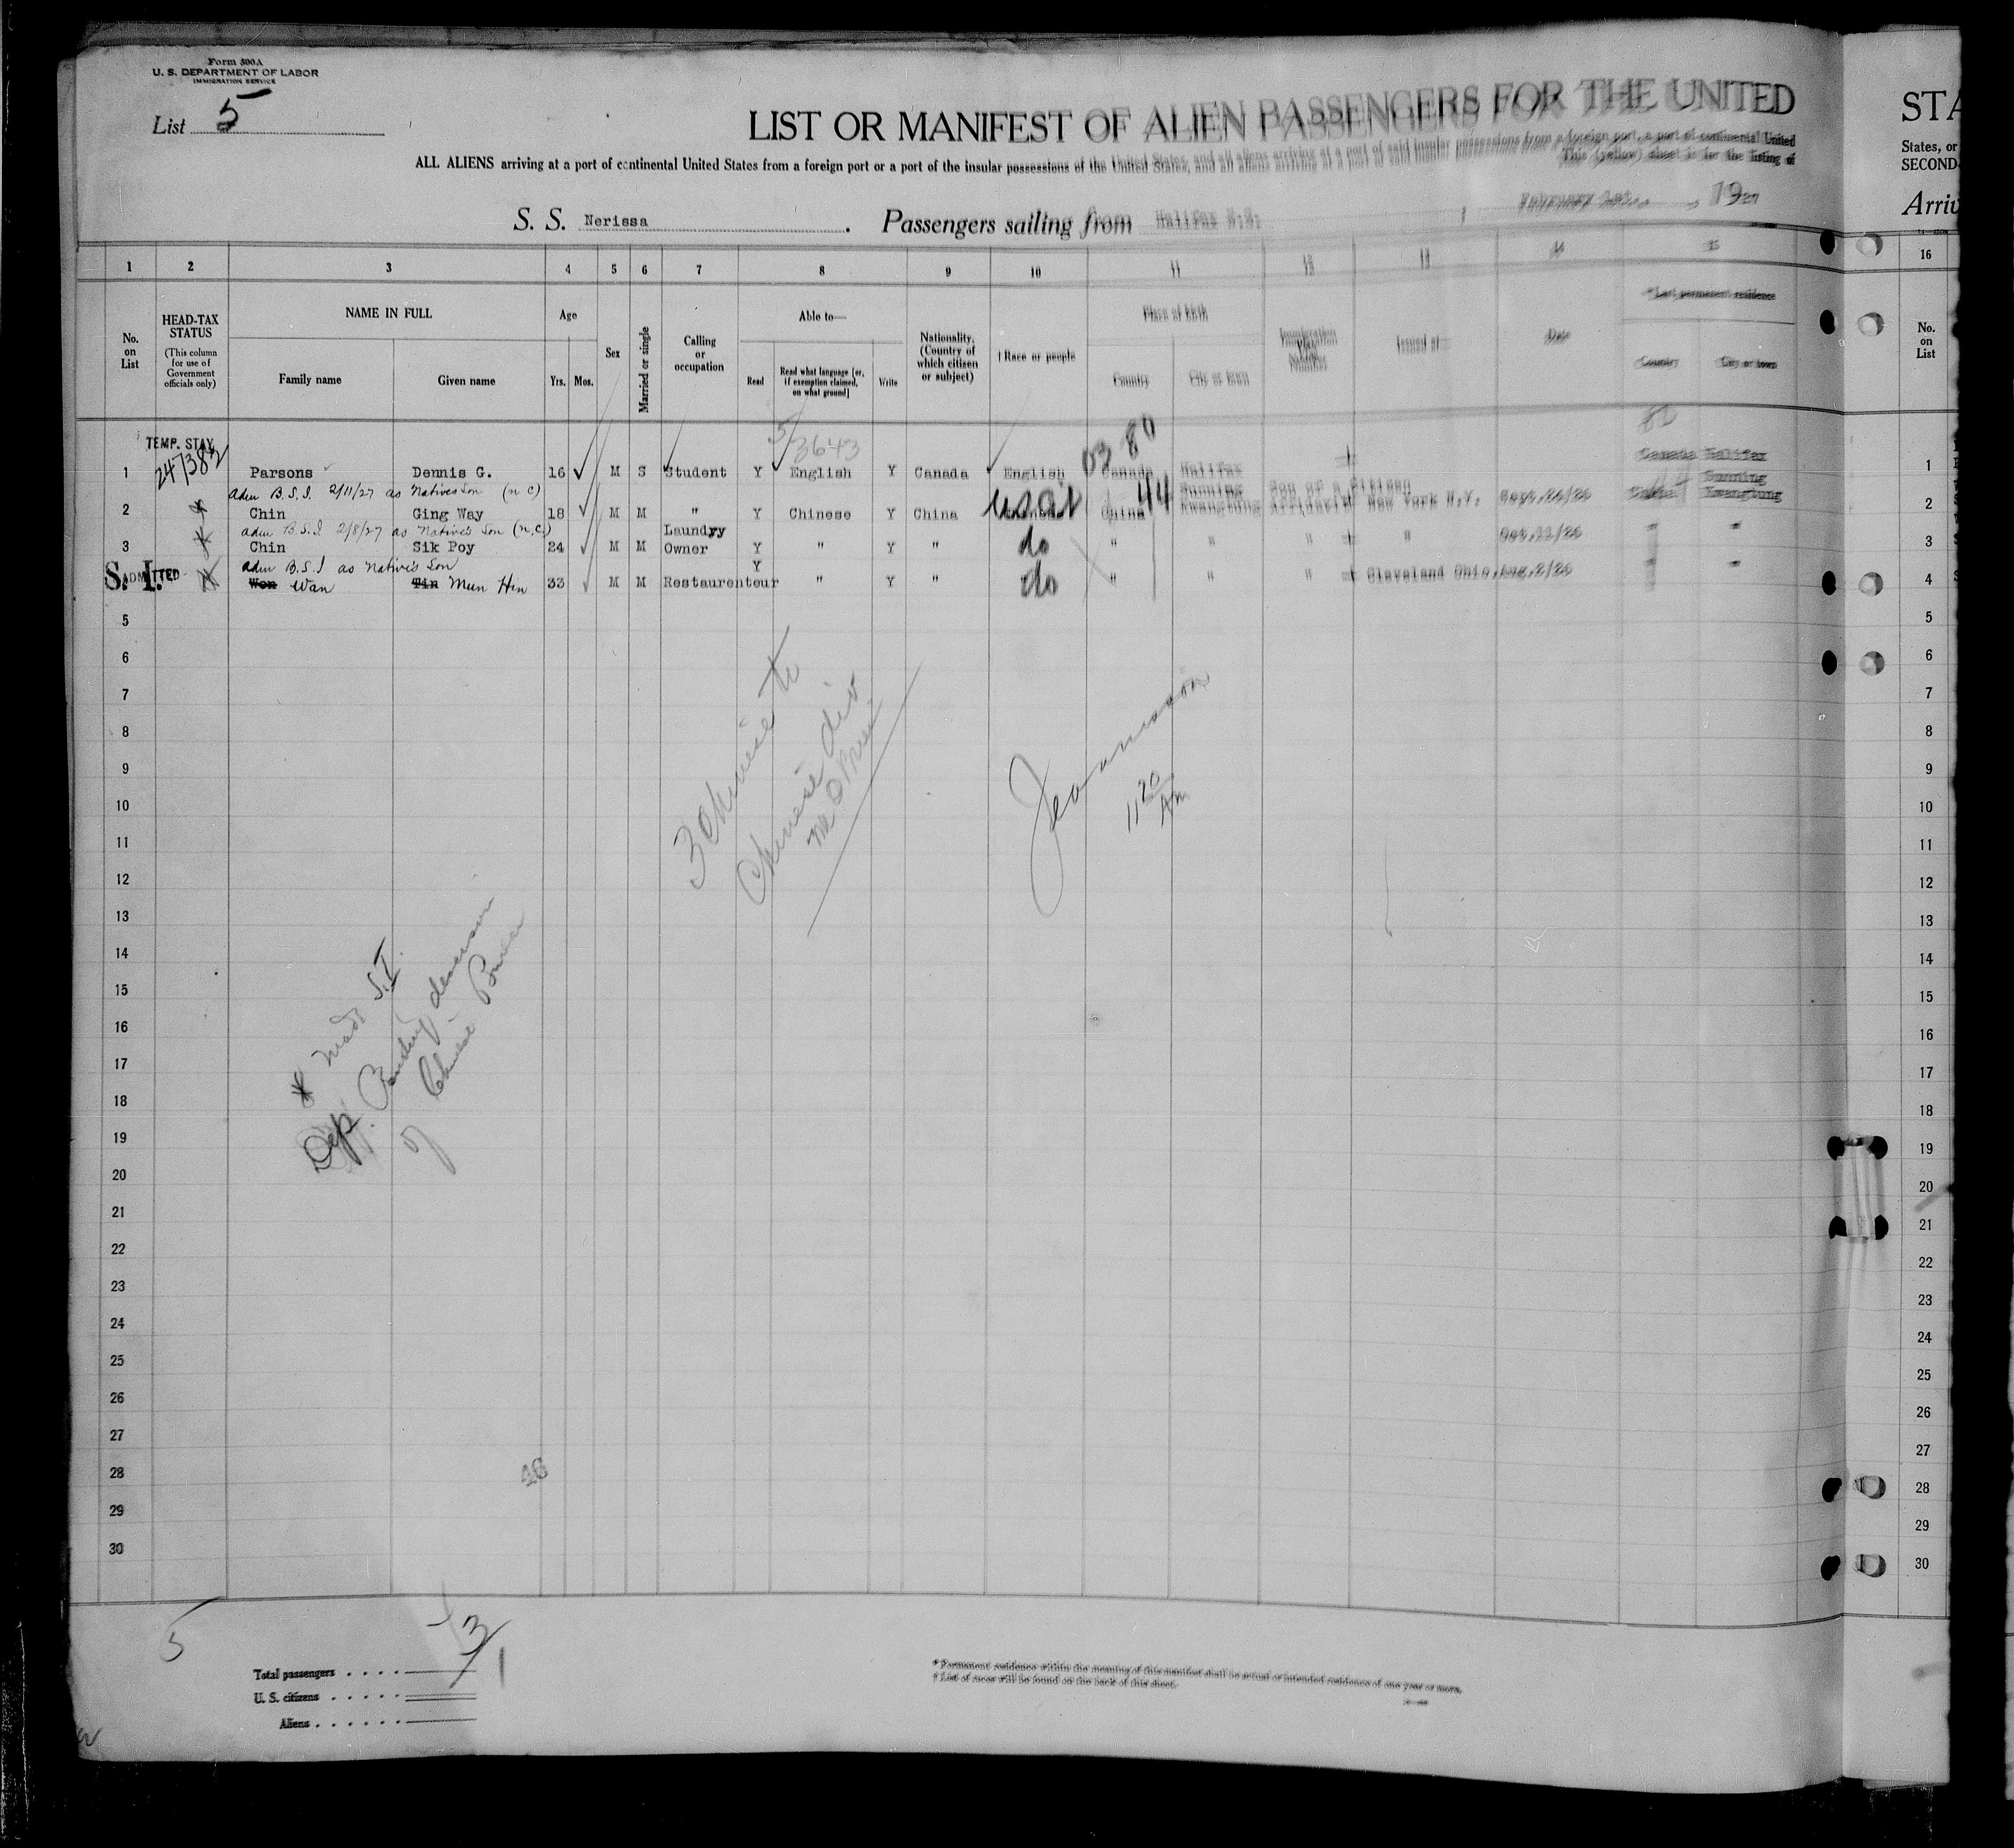 Form 500A
U. S. DEPARTMENT OF LABOR
IMMIGRATION SERVICE
List 5
LIST OR MANIFEST OF ALIEN PASSENGERS FOR THE UNITED
STA
ALL ALIENS arriving at a port of continental United States from a foreign port or a port of the insular possessions of the United States, and all aliens arriving at a port of said insular possessions from a foreign port, a port of continental United
States, or
This (yellow) sheet is for the listing of
SECOND-
S. S. Nerissa. Passengers sailing from Halifax N.S. February 1st., 1927
Arriv
1 2 3 4 5 6 7 8 9 10 11 12 13 14 15 16
No. on List
HEAD-TAX STATUS
(This column for use of Government officials only)
NAME IN FULL
Family name
Given name
Age
Yrs. Mos.
Sex
Married or single
Calling or occupation
Able to—
Read
Read what language [or, if exemption claimed, on what ground]
Write
Nationality. (Country of which citizen or subject)
† Race or people
Place of birth
Country
City or town
Immigration Visa Number
Issued at—
Date
*Last permanent residence
Country
City or town
No. on List
5/3643
03 80
TEMP. STAY
247382
1 Parsons Dennis G. 16 M S Student Y English Y Canada English Canada Halifax Canada Halifax 1
adm B.S.I. 2/11/27 as Natives Son (n c)
2 Chin Ging Way 18 M M " Y Chinese Y China usat China 44 Sunning Kwangtung Son of a Citizen Affidavit New York N.Y. Sept.24/26 China Sunning Kwangtung 2
adm B.S.I. 2/8/27 as Native's Son (n.c.)
3 Chin Sik Poy 24 M M Laundry Owner Y " Y " do " " " " Oct.22/26 " " 3
adm B.S.I as Native's Son
S. I. ADMITTED
4 Won Wan Tin Mun Hin 33 M M Restaurenteur Y " Y " do " " " Cleveland Ohio, Aug.2/26 " " 4
5 5
6 6
7 7
8 8
9 9
10 10
11 11
12 12
13 13
14 14
15 15
16 16
17 17
18 18
19 19
20 20
21 21
22 22
23 23
24 24
25 25
26 26
27 27
28 28
29 29
30 30
3 Chinese to
Chinese div
1120 Am
* Made S.I.
Dep. Pending decision
of Chinese Bureau
46
5
3/1
Total passengers
U. S. citizens
Aliens
* Permanent residence within the meaning of this manifest shall be actual or intended residence of one year or more.
† List of races will be found on the back of this sheet.